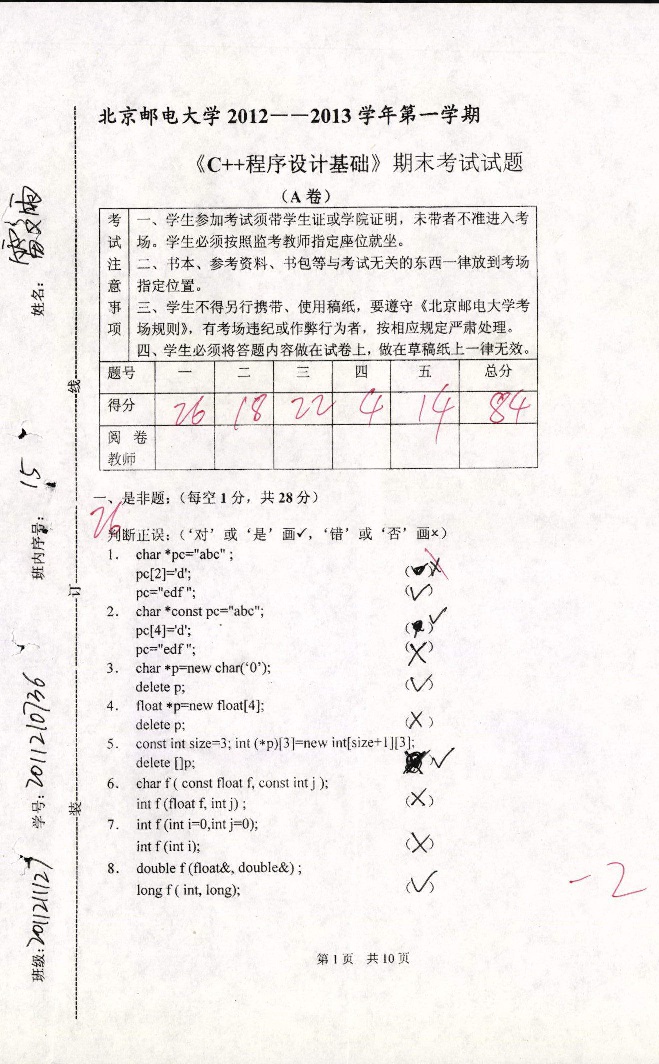 北京邮电大学 2012——2013 学年第一学期
《C++程序设计基础》期末考试试题
（A 卷）
考试注意事项
一、学生参加考试须带学生证或学院证明，未带者不准进入考
场。学生必须按照监考教师指定座位就坐。
二、书本、参考资料、书包等与考试无关的东西一律放到考场
指定位置。
三、学生不得另行携带、使用稿纸，要遵守《北京邮电大学考
场规则》，有考场违纪或作弊行为者，按相应规定严肃处理。
四、学生必须将答题内容做在试卷上，做在草稿纸上一律无效。
题号 一 二 三 四 五 总分
得分 26 18 22 4 14 84
阅 卷
教师
一、是非题；（每空 1 分，共 28 分）
26
判断正误：（‘对’或‘是’画✓，‘错’或‘否’画×）
1. char *pc="abc" ;
pc[2]='d'; ( ) ×
pc="edf "; (✓)
2. char *const pc="abc";
pc[4]='d'; ( ) ✓
pc="edf "; (×)
3. char *p=new char('0');
delete p; (✓)
4. float *p=new float[4];
delete p; (×)
5. const int size=3; int (*p)[3]=new int[size+1][3];
delete []p; ✓
6. char f ( const float f, const int j );
int f (float f, int j) ; (×)
7. int f (int i=0,int j=0);
int f (int i); (×)
8. double f (float&, double&) ;
long f ( int, long); (✓)
-2
第 1 页 共 10 页
班级: 2011211127 学号: 2011210736 班内序号: 15 姓名:
装 订 线